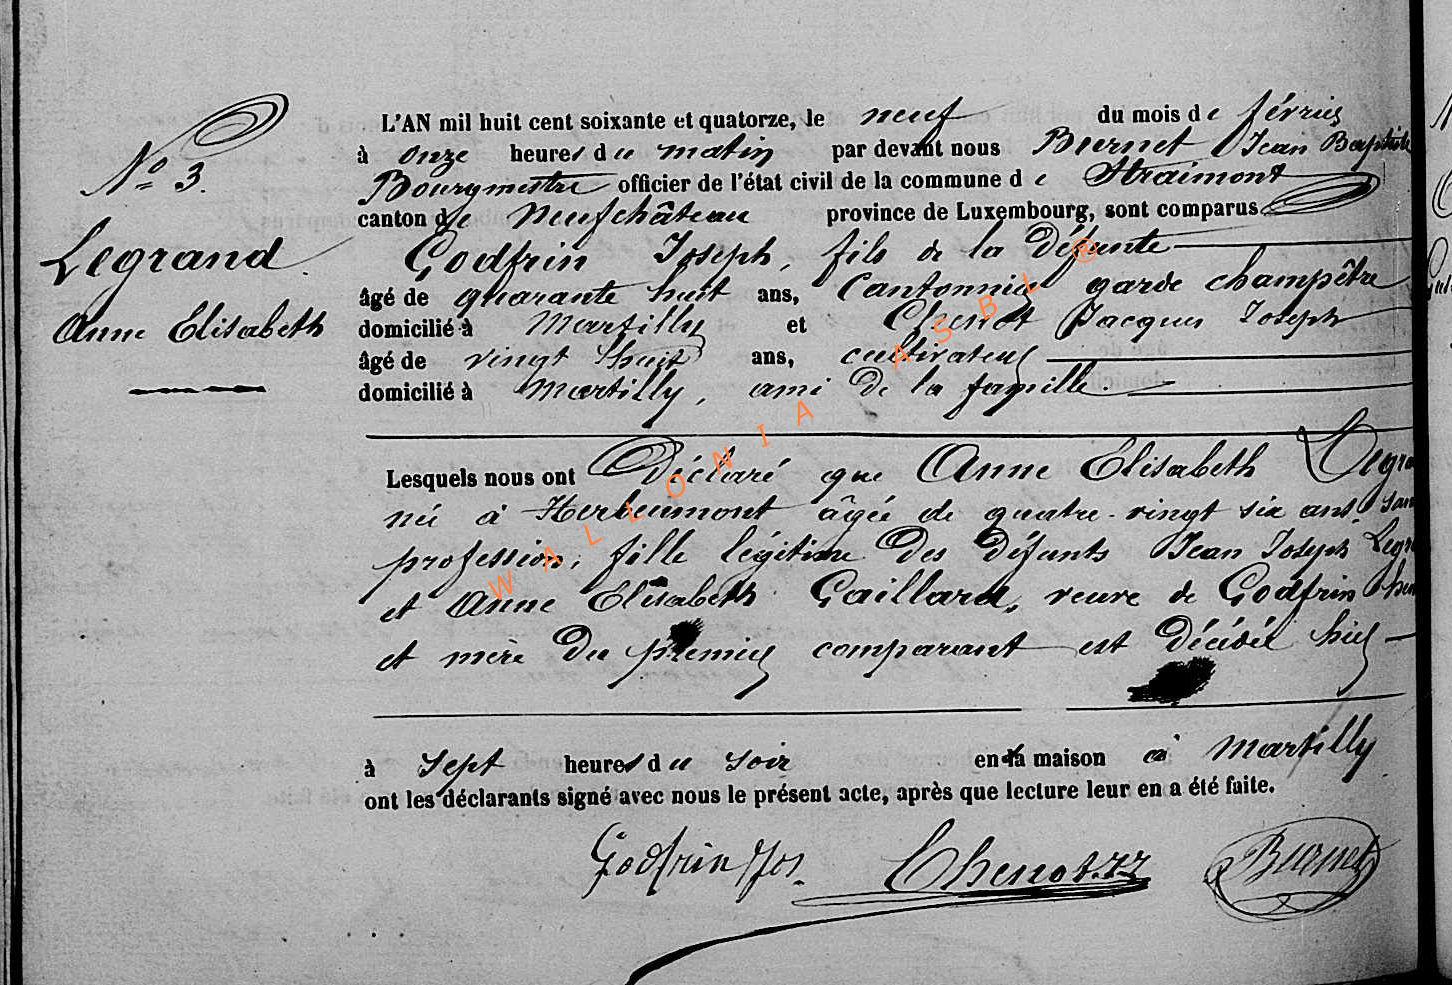 N° 3.
Legrand
Anne Elisabeth
L'AN mil huit cent soixante et quatorze, le neuf du mois de février
à onze heures du matin par devant nous Burnet Jean Baptiste
Bourgmestre officier de l'état civil de la commune de Straimont
canton de Neufchâteau province de Luxembourg, sont comparus
Godfrin Joseph, fils de la défunte
âgé de quarante huit ans, Cantonnier garde champêtre
domicilié à Martilly et Chenot Jacques Joseph
âgé de vingt huit ans, cultivateur
domicilié à Martilly, ami de la famille
Lesquels nous ont Déclaré que Anne Elisabeth Legra
née à Herbeumont âgée de quatre-vingt six ans, san
profession, fille légitime des défunts Jean Joseph Legr
et Anne Elisabeth Gaillard, veuve de Godfrin
et mère du premier comparant est décédée hier
à sept heures du soir en la maison à Martilly
ont les déclarants signé avec nous le présent acte, après que lecture leur en a été faite.
Godfrin Jos. Chenot. JJ Burnet
WALLONIA ASBL ®